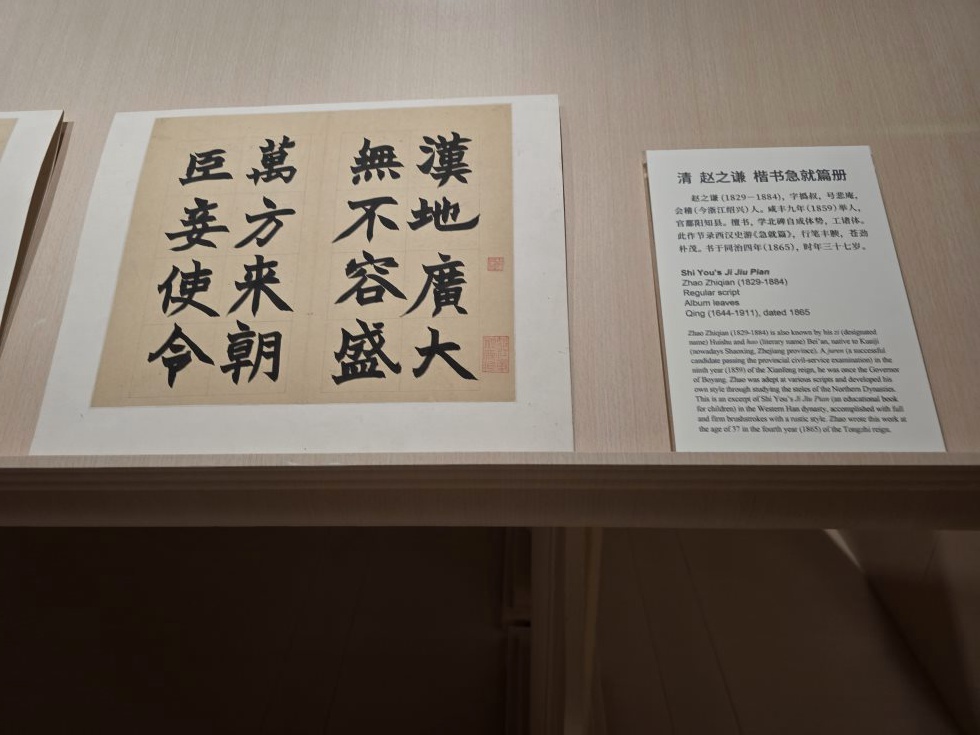 漢地廣大
無不容盛
萬方来朝
臣妾使令
清 赵之谦 楷书急就篇册
赵之谦(1829－1884)，字㧑叔，号悲庵，
会稽(今浙江绍兴)人。咸丰九年(1859)举人，
官鄱阳知县。擅书，学北碑自成体势，工诸体。
此作节录西汉史游《急就篇》，行笔丰腴，苍劲
朴茂。书于同治四年(1865)，时年三十七岁。
Shi You's Ji Jiu Pian
Zhao Zhiqian (1829-1884)
Regular script
Album leaves
Qing (1644-1911), dated 1865
Zhao Zhiqian (1829-1884) is also known by his zi (designated
name) Huishu and hao (literary name) Bei'an, native to Kuaiji
(nowadays Shaoxing, Zhejiang province). A juren (a successful
candidate passing the provincial civil-service examination) in the
ninth year (1859) of the Xianfeng reign, he was once the Governor
of Boyang. Zhao was adept at various scripts and developed his
own style through studying the steles of the Northern Dynasties.
This is an excerpt of Shi You's Ji Jiu Pian (an educational book
for children) in the Western Han dynasty, accomplished with full
and firm brushstrokes with a rustic style. Zhao wrote this work at
the age of 37 in the fourth year (1865) of the Tongzhi reign.